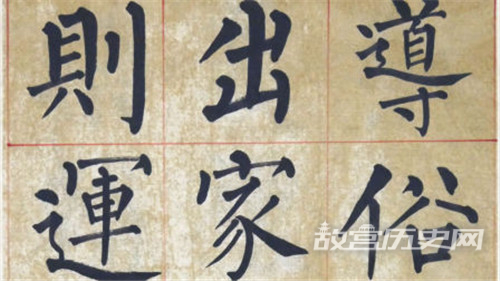 導俗
出家
則運
故宫历史网